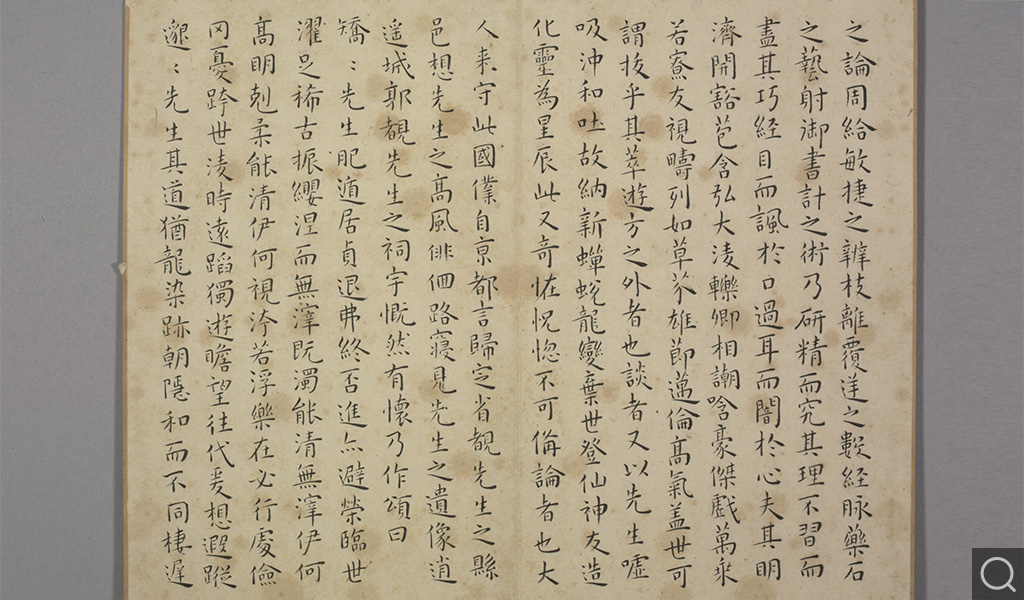 之論周給敏捷之辨枝離覆逆之數經脉藥石
之藝射御書計之術乃研精而究其理不習而
盡其巧經目而諷於口過耳而闇於心夫其明
濟開豁苞含弘大淩轢卿相謿唅豪傑戲萬乘
若寮友視疇列如草芥雄節邁倫高氣盖世可
謂拔乎其萃遊方之外者也談者又以先生噓
吸沖和吐故納新蟬蛻龍變棄世登仙神友造
化靈為星辰此又奇怪怳惚不可備論者也大
人来守此國僕自京都言歸定省覩先生之縣
邑想先生之高風徘徊路寢見先生之遺像逍
遥城郭覩先生之祠宇慨然有懷乃作頌曰
矯〻先生肥遁居貞退弗終否進亦避榮臨世
濯足稀古振纓涅而無滓既濁能清無滓伊何
高明剋柔能清伊何視汙若浮樂在必行處儉
罔憂跨世淩時遠蹈獨遊瞻望往代爰想遐蹤
邈〻先生其道猶龍染跡朝隱和而不同棲遲